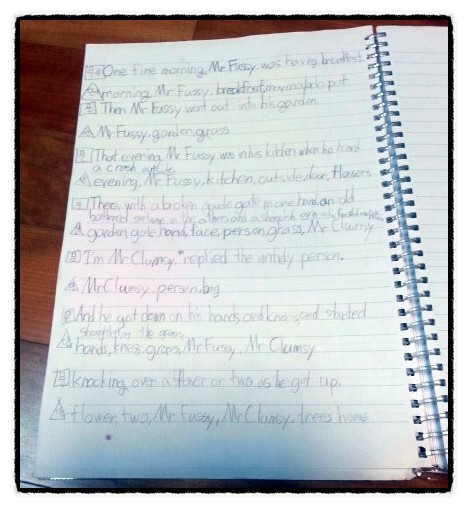 One fine morning, Mr Fussy was having breakfast
morning, Mr Fussy, breakfast,
Then Mr Fussy went out into his garden
Mr Fussy, garden, grass
That evening Mr Fussy was in his kitchen when he heard
a crash outside
evening, Mr Fussy, kitchen, outside, door, flowers
There, with a broken gate in one hand, an old
battered suitcase in the other, and a
garden, gate, hand, face, person, grass, Mr Clumsy
"I'm Mr Clumsy," replied the untidy person.
Mr Clumsy, person, bag
And he got down on his hands and knees, and started
the grass,
hands, knees, grass, Mr Fussy, Mr Clumsy
knocking over a flower or two as he got up.
flower, two, Mr Fussy, Mr Clumsy, trees home